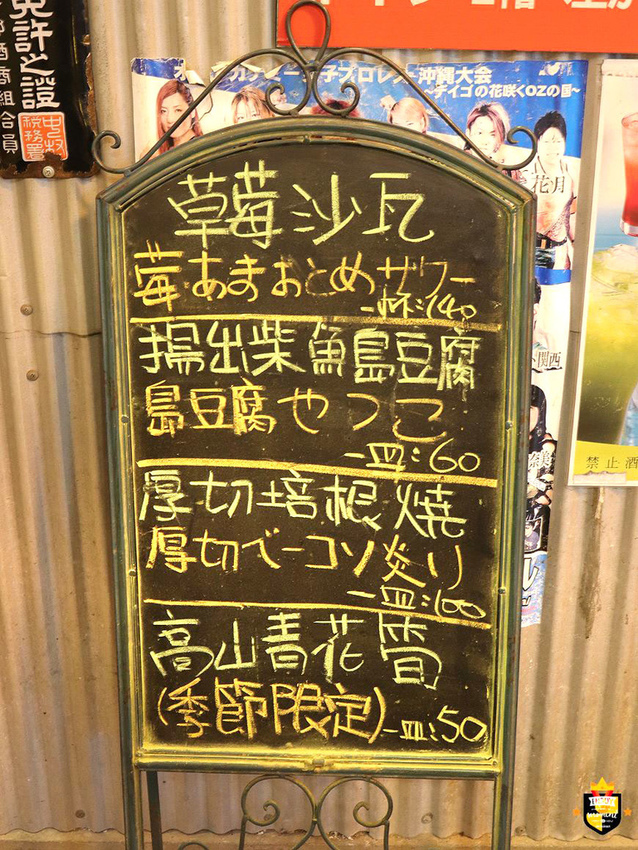 免許と證
酒商組合員
税務署
沖縄大会
～デイゴの花咲くOZの国～
花月
関西
禁止酒
草莓沙瓦
莓あまおとめサワー
一杯:140
揚出柴魚島豆腐
島豆腐やっこ
一皿:60
厚切培根燒
厚切ベーコン炙り
一皿:100
高山青花筍
(季節限定)一皿:50